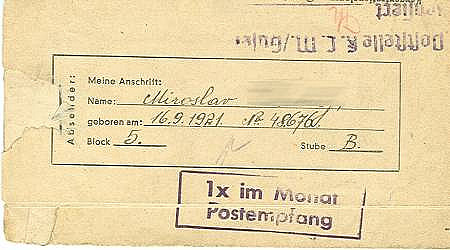 Poststelle K. L. M./Gus
Absender:
Meine Anschrift:
Name: Miroslav
geboren am: 16.9.1921. Nr. 48676
Block 5. Stube B.
1x im Monat
Postempfang